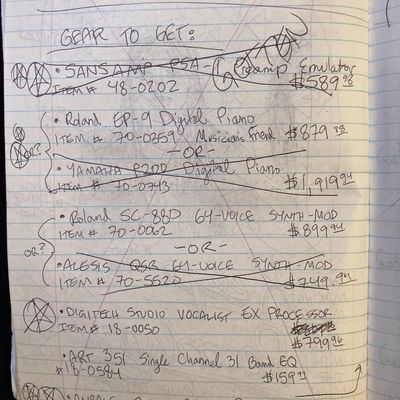 GEAR TO GET:
• SANSAMP PSA-1 Preamp Emulator
ITEM # 48-0202 $589
• Roland EP-9 Digital Piano
ITEM # 70-0259 Musicians Friend $879
OR? -OR-
• YAMAHA P200 Digital Piano
ITEM # 70-0743 $1,919.94
• Roland SC-88D 64-VOICE SYNTH-MOD
ITEM # 70-0062 $899.94
OR? -OR-
• ALESIS QSR 64-VOICE SYNTH-MOD
ITEM # 70-552D $749.94
• DIGITECH STUDIO VOCALIST EX PROCESSOR
ITEM # 18-0050 $799
• ART 351 Single Channel 31 Band EQ
#18-0584 $159